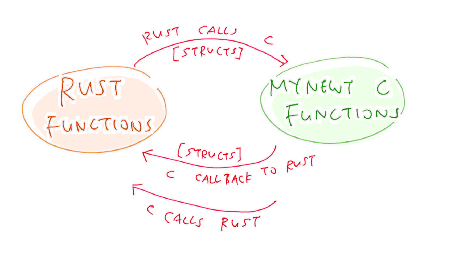 RUST CALLS C
[STRUCTS]
RUST
FUNCTIONS
MYNEWT C
FUNCTIONS
[STRUCTS]
C CALLBACK TO RUST
C CALLS RUST